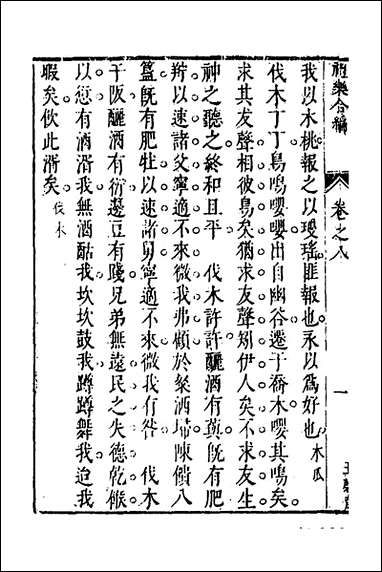 禮樂合編 卷之八 一
我以木桃報之以瓊瑤匪報也永以爲好也 木瓜
伐木丁丁鳥鳴嚶嚶出自幽谷遷于喬木嚶其鳴矣
求其友聲相彼鳥矣猶求友聲矧伊人矣不求友生
神之聽之終和且平 伐木許許釃酒有藇旣有肥
羜以速諸父寧適不來微我弗顧於粲洒埽陳饋八
簋旣有肥牡以速諸舅寧適不來微我有咎 伐木
于阪釃酒有衍籩豆有踐兄弟無遠民之失德乾餱
以愆有酒湑我無酒酤我坎坎鼓我蹲蹲舞我迨我
暇矣飲此湑矣 伐木